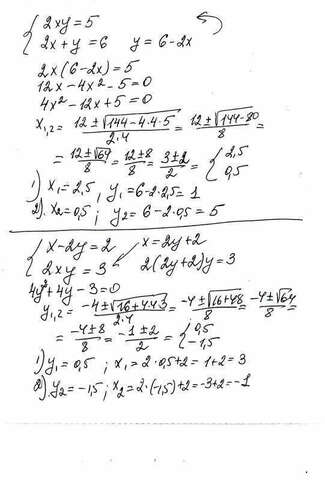 { 2xy = 5
2x + y = 6   y = 6 - 2x
2x(6 - 2x) = 5
12x - 4x² - 5 = 0
4x² - 12x + 5 = 0
x₁,₂ = (12 ± √(144 - 4·4·5))/(2·4) = (12 ± √(144 - 80))/8 =
= (12 ± √64)/8 = (12 ± 8)/8 = (3 ± 2)/2 = { 2,5 0,5
1) x₁ = 2,5, y₁ = 6 - 2·2,5 = 1
2). x₂ = 0,5; y₂ = 6 - 2·0,5 = 5
{ x - 2y = 2   x = 2y + 2
2xy = 3   2(2y + 2)y = 3
4y² + 4y - 3 = 0
y₁,₂ = (-4 ± √(16 + 4·4·3))/(2·4) = (-4 ± √(16 + 48))/8 = (-4 ± √64)/8
= (-4 ± 8)/8 = (-1 ± 2)/2 = { 0,5 -1,5
1) y₁ = 0,5; x₁ = 2·0,5 + 2 = 1 + 2 = 3
2). y₂ = -1,5; x₂ = 2·(-1,5) + 2 = -3 + 2 = -1